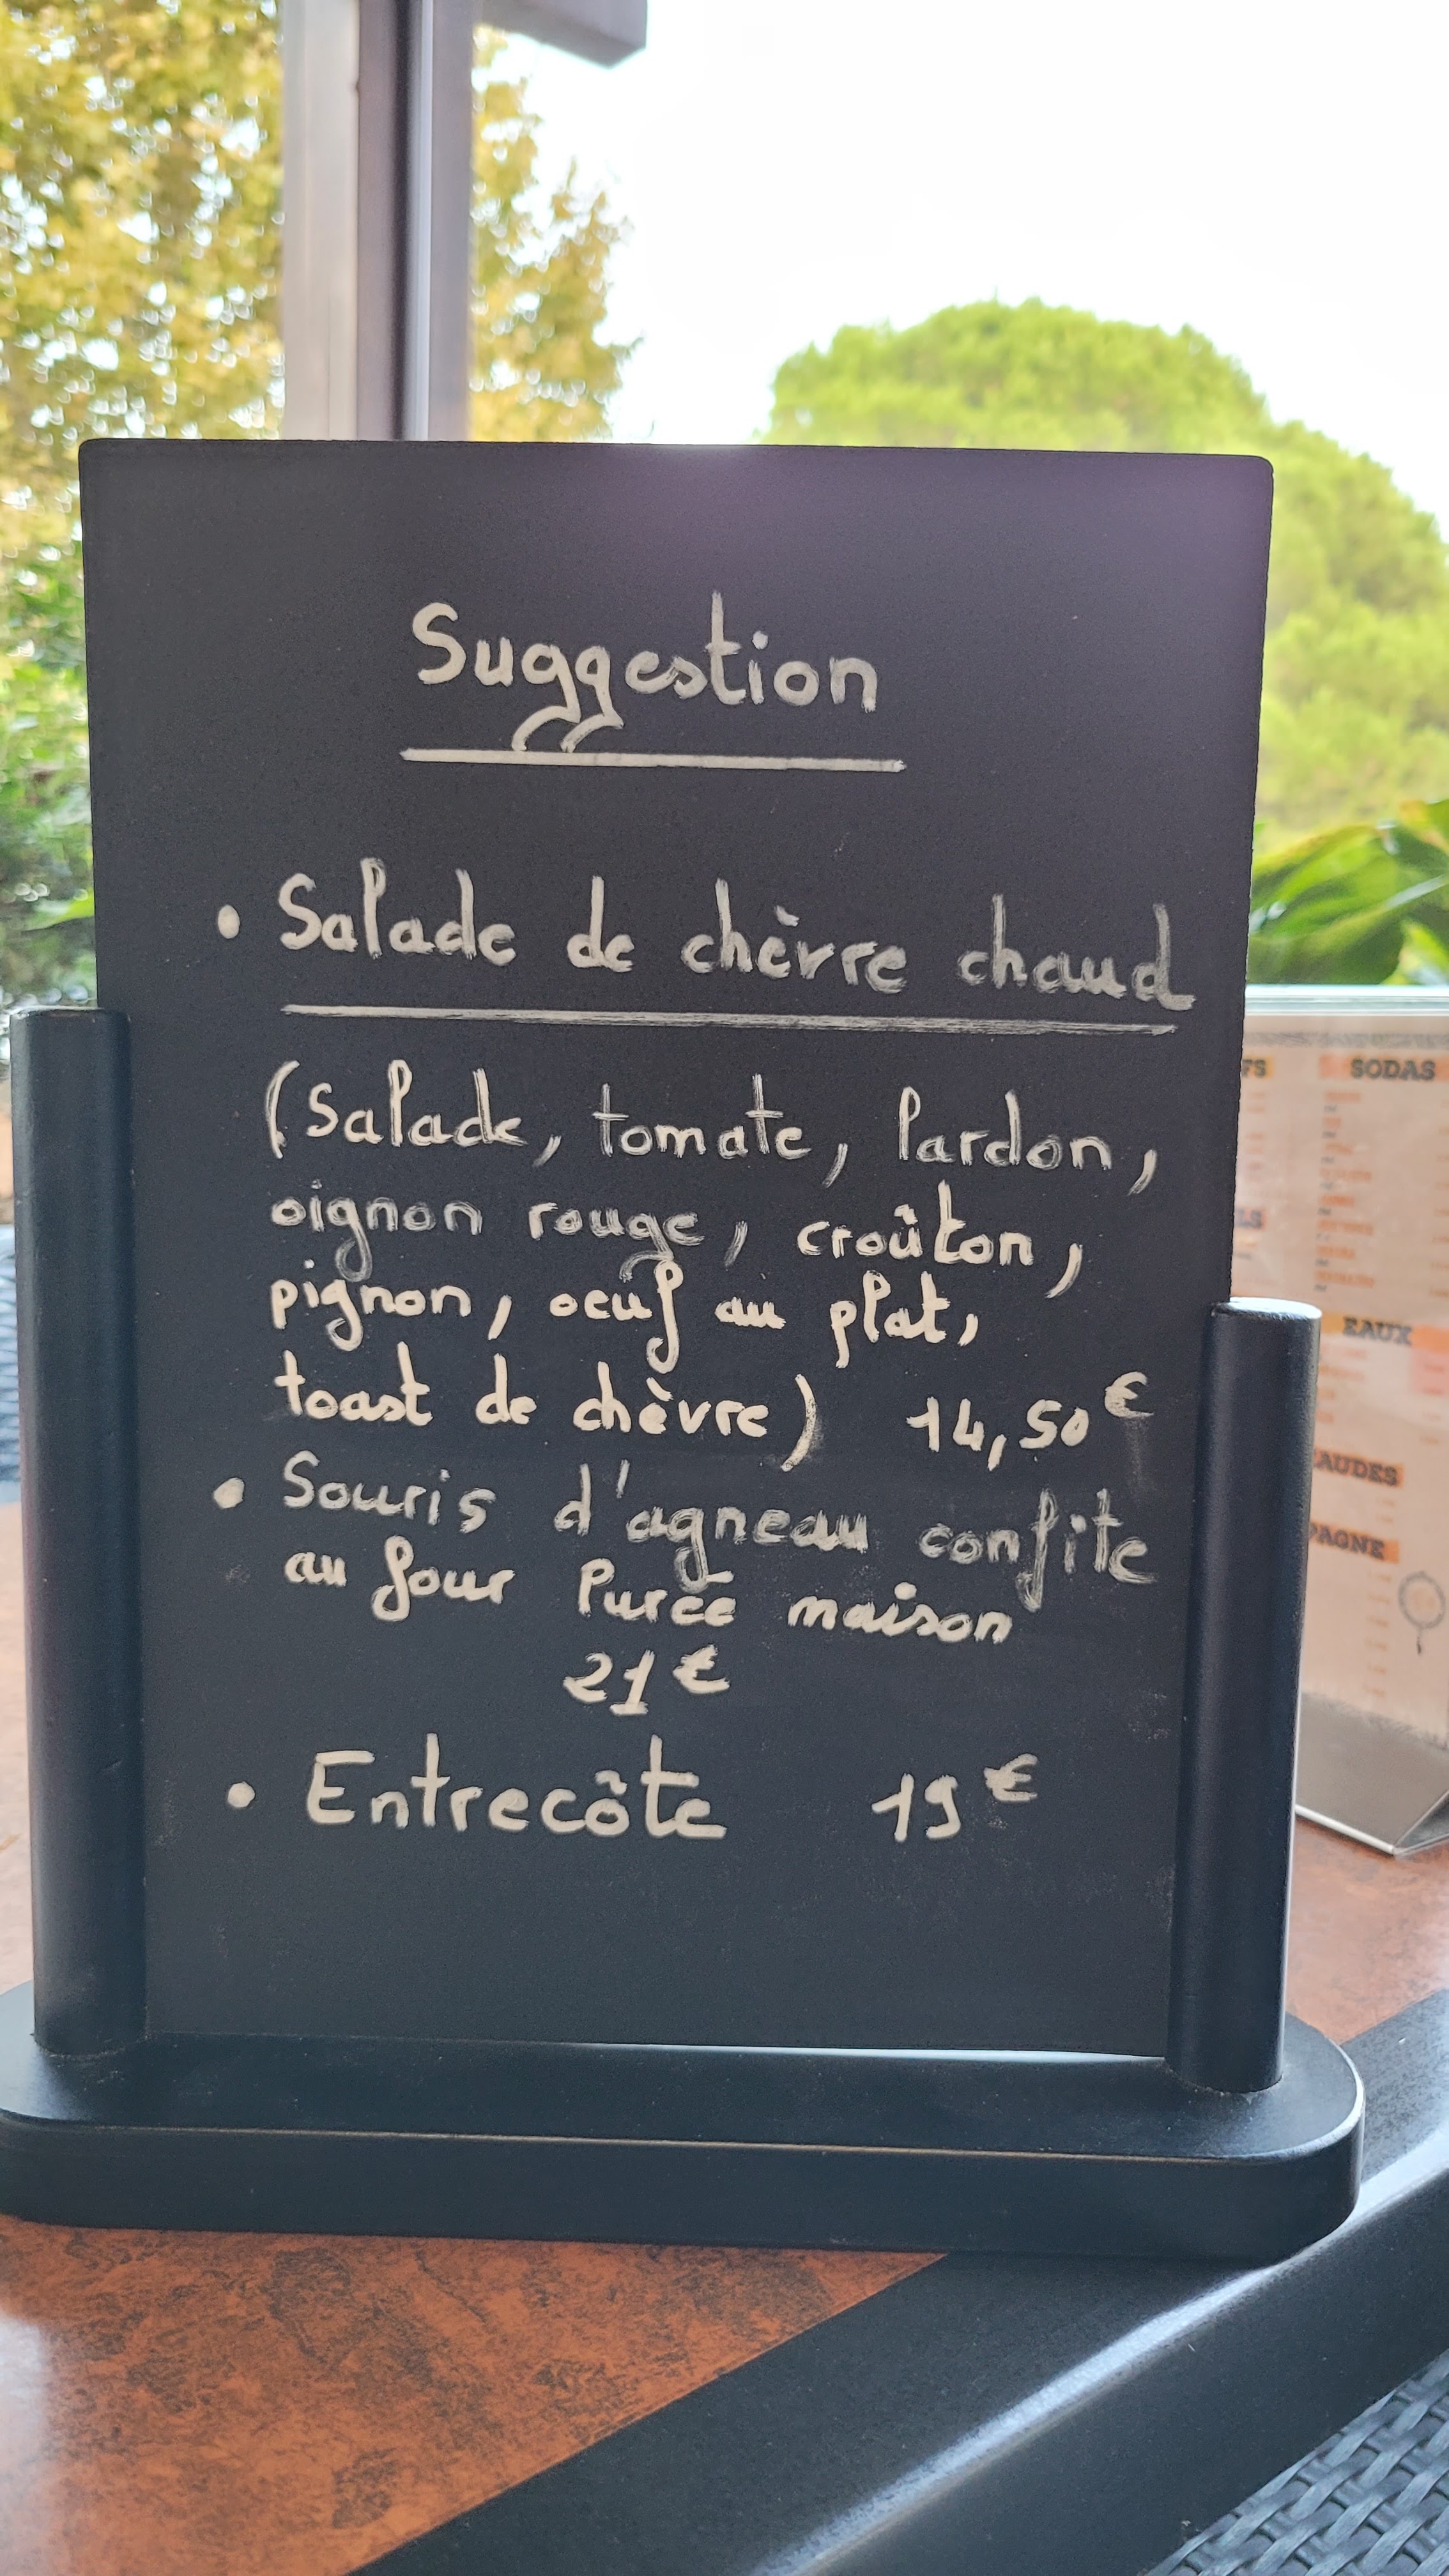 Suggestion
• Salade de chèvre chaud
(Salade, tomate, lardon,
oignon rouge, croûton,
pignon, oeuf au plat,
toast de chèvre) 14,50€
• Souris d'agneau confite
au four Purée maison
21€
• Entrecôte 19€
SODAS
EAUX